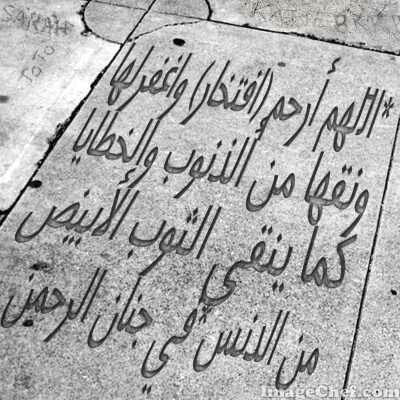 *اللهم أرحم (افتخار) واغفر لها
ونقها من الذنوب والخطايا
كما ينقي الثوب الأبيض
من الدنس في جنان الرحمن
ImageChef.com